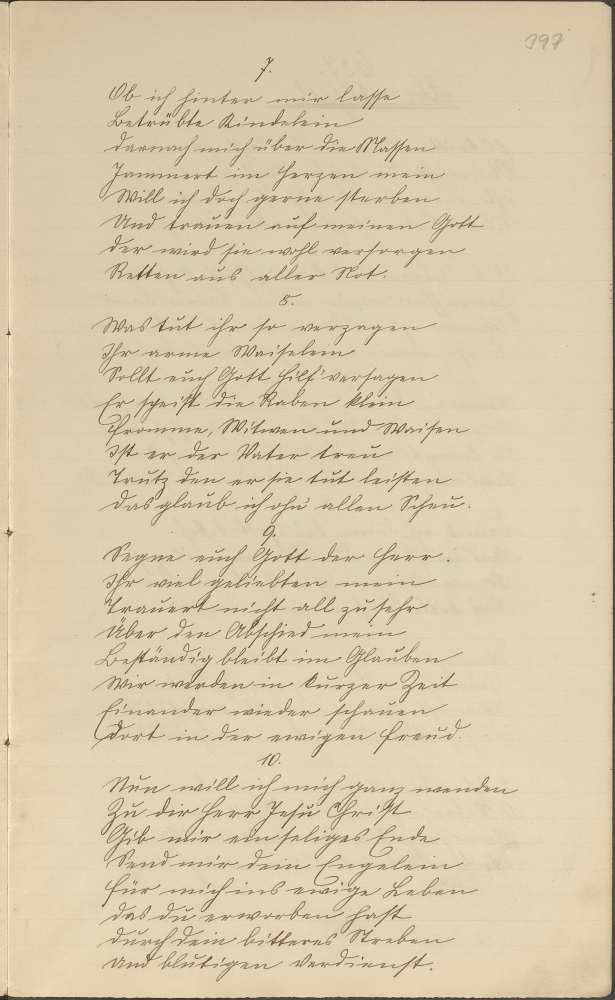 397
7.
Ob ich hinter mir lasse
Betrübte Kindelein
Darnach mich über die Massen
Jammert im Herzen mein
Will ich doch gerne sterben
Und trauen auf meinen Gott
Der wird sie wohl versorgen
Retten aus aller Not.
8.
Was tut ihr so verzagen
Ihr arme Waiselein
Sollt euch Gott Hilf versagen
Er speist die Raben klein
Fromme, Witwen und Waisen
Ist er der Vater treu
Trutz den er sie tut leisten
Das glaub ich ohn' allen Scheu.
9.
Segne euch Gott der Herr.
Ihr viel geliebten mein
Trauert nicht all zu sehr
Über den Abschied mein
Beständig bleibt im Glauben
Wir werden in kurzer Zeit
Einander wieder schauen
Dort in der ewigen Freud.
10.
Nun will ich mich ganz wenden
Zu dir Herr Jesu Christ
Gib mir ein seliges Ende
Send mir dein Engelein
Für mich ins ewige Leben
Das du erworben hast
Durch dein bitteres Streben
Und blutigen Verdienst.